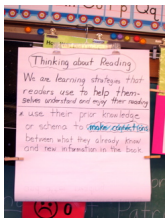 Thinking about Reading
We are learning strategies that
readors use to help them-
selves understand and enjoy their reading
* use their prior knowledge
or schema to make connections
between what they already know
and new information in the book
0